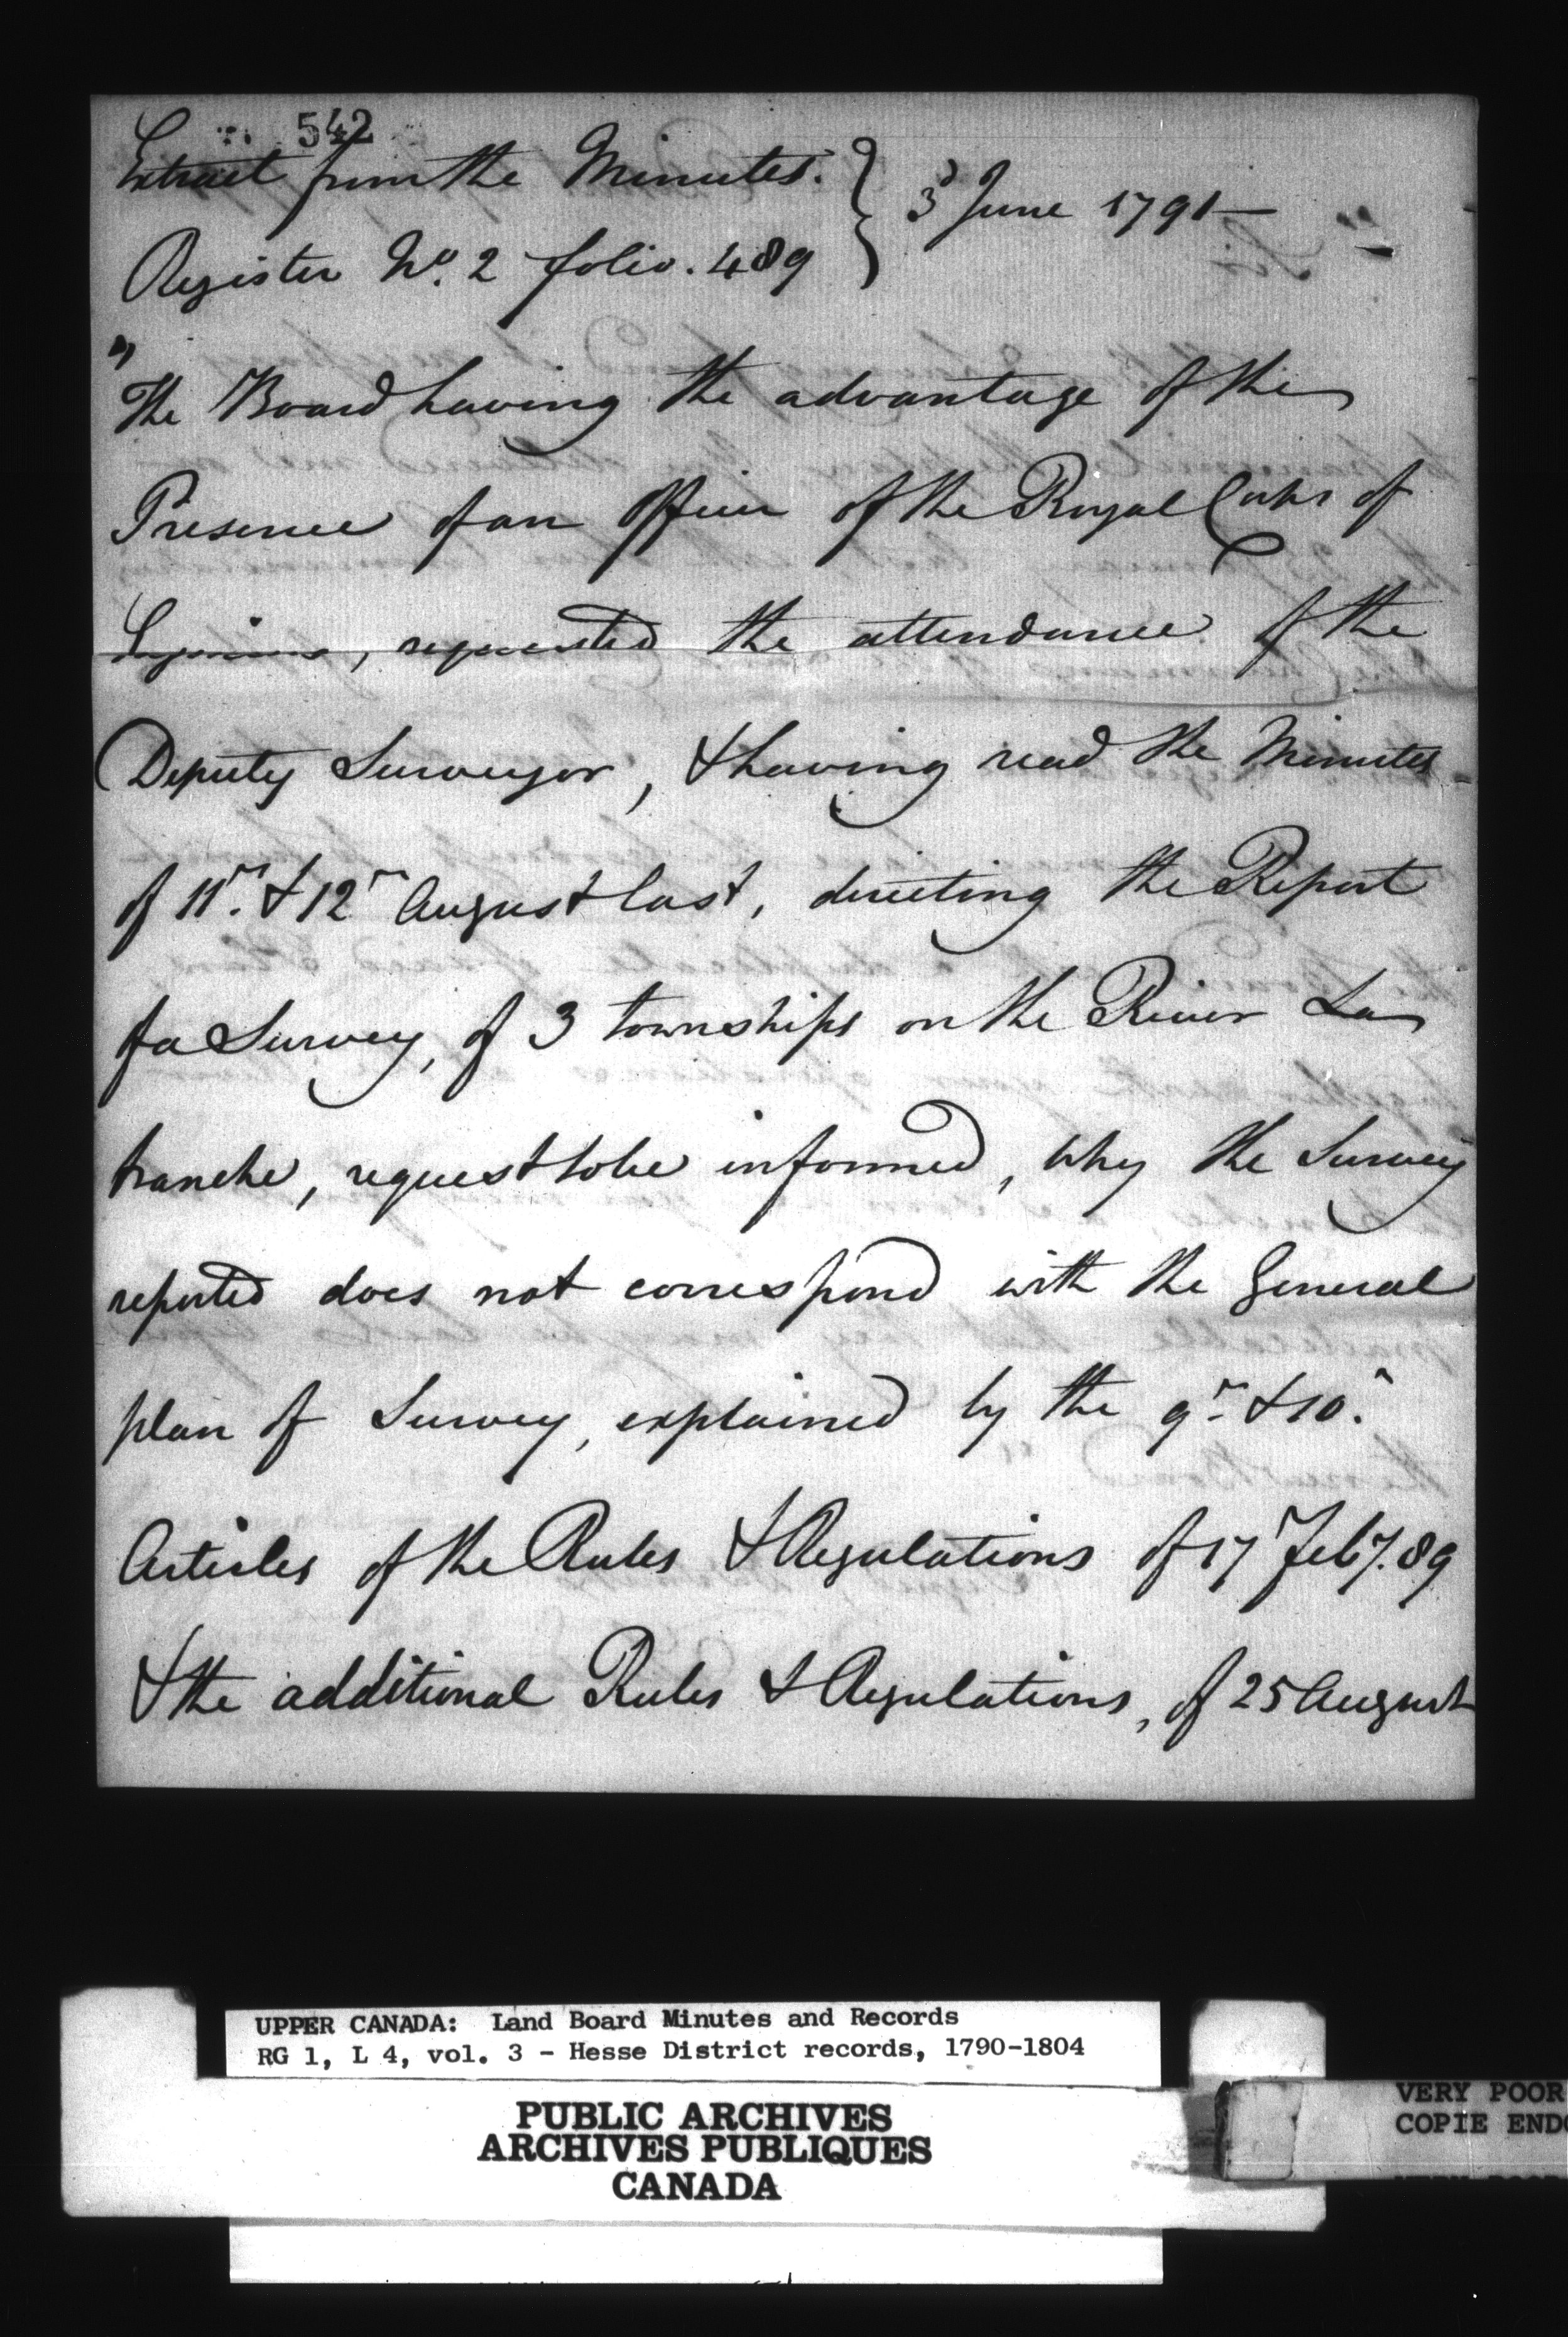 542
Extract from the Minutes. } 3d June 1791—
Register No. 2 folio. 489
"The Board having the advantage of the
Presence of an Officer of the Royal Corps of
Engineers, requested the attendance of the
Deputy Surveyor, & having read the Minutes
of 11th. & 12th August last, directing the Report
of a Survey, of 3 townships on the River La
tranche, request to be informed, why the Survey
reported does not correspond with the General
plan of Survey, explained by the 9th. & 10th.
Articles of the Rules & Regulations of 17th Feby. 89
& the additional Rules & Regulations, of 25 August
UPPER CANADA: Land Board Minutes and Records
RG 1, L 4, vol. 3 - Hesse District records, 1790-1804
PUBLIC ARCHIVES
ARCHIVES PUBLIQUES
CANADA
VERY POOR
COPIE ENDO